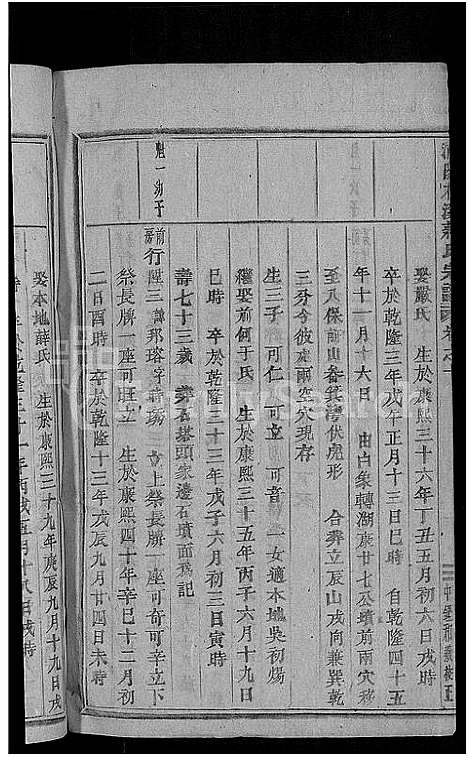 娶嚴氏　生於康熙三十六年丁丑五月初六日戌時
卒於乾隆三年戊午正月十三日巳時　自乾隆四十五
年十一月十六日　由白象轉湖蔟廿七公墳前兩穴移
至八保前山畚箕灣伏虎形　合葬立辰山戌向兼巽乾
三分今彼連兩空穴現存
生三子　可仁　可立　可音　一女適本地吳初煬
繼娶前何于氏　生於康熙三十五年丙子六月十九日
巳時　卒於乾隆三十三年戊子六月初三日寅時
壽七十三歲　葬石塔頭家邊石墳面為記
魁一幼子
前房
行陞三諱邦瑢字時琇　立上祭長牌一座可奇可辛立下
祭長牌一座可旺立　生於康熙四十年辛巳十二月初
二日酉時　卒於乾隆十三年戊辰九月廿四日未時
娶本地薛氏　生於康熙三十九年庚辰九月十九日戌